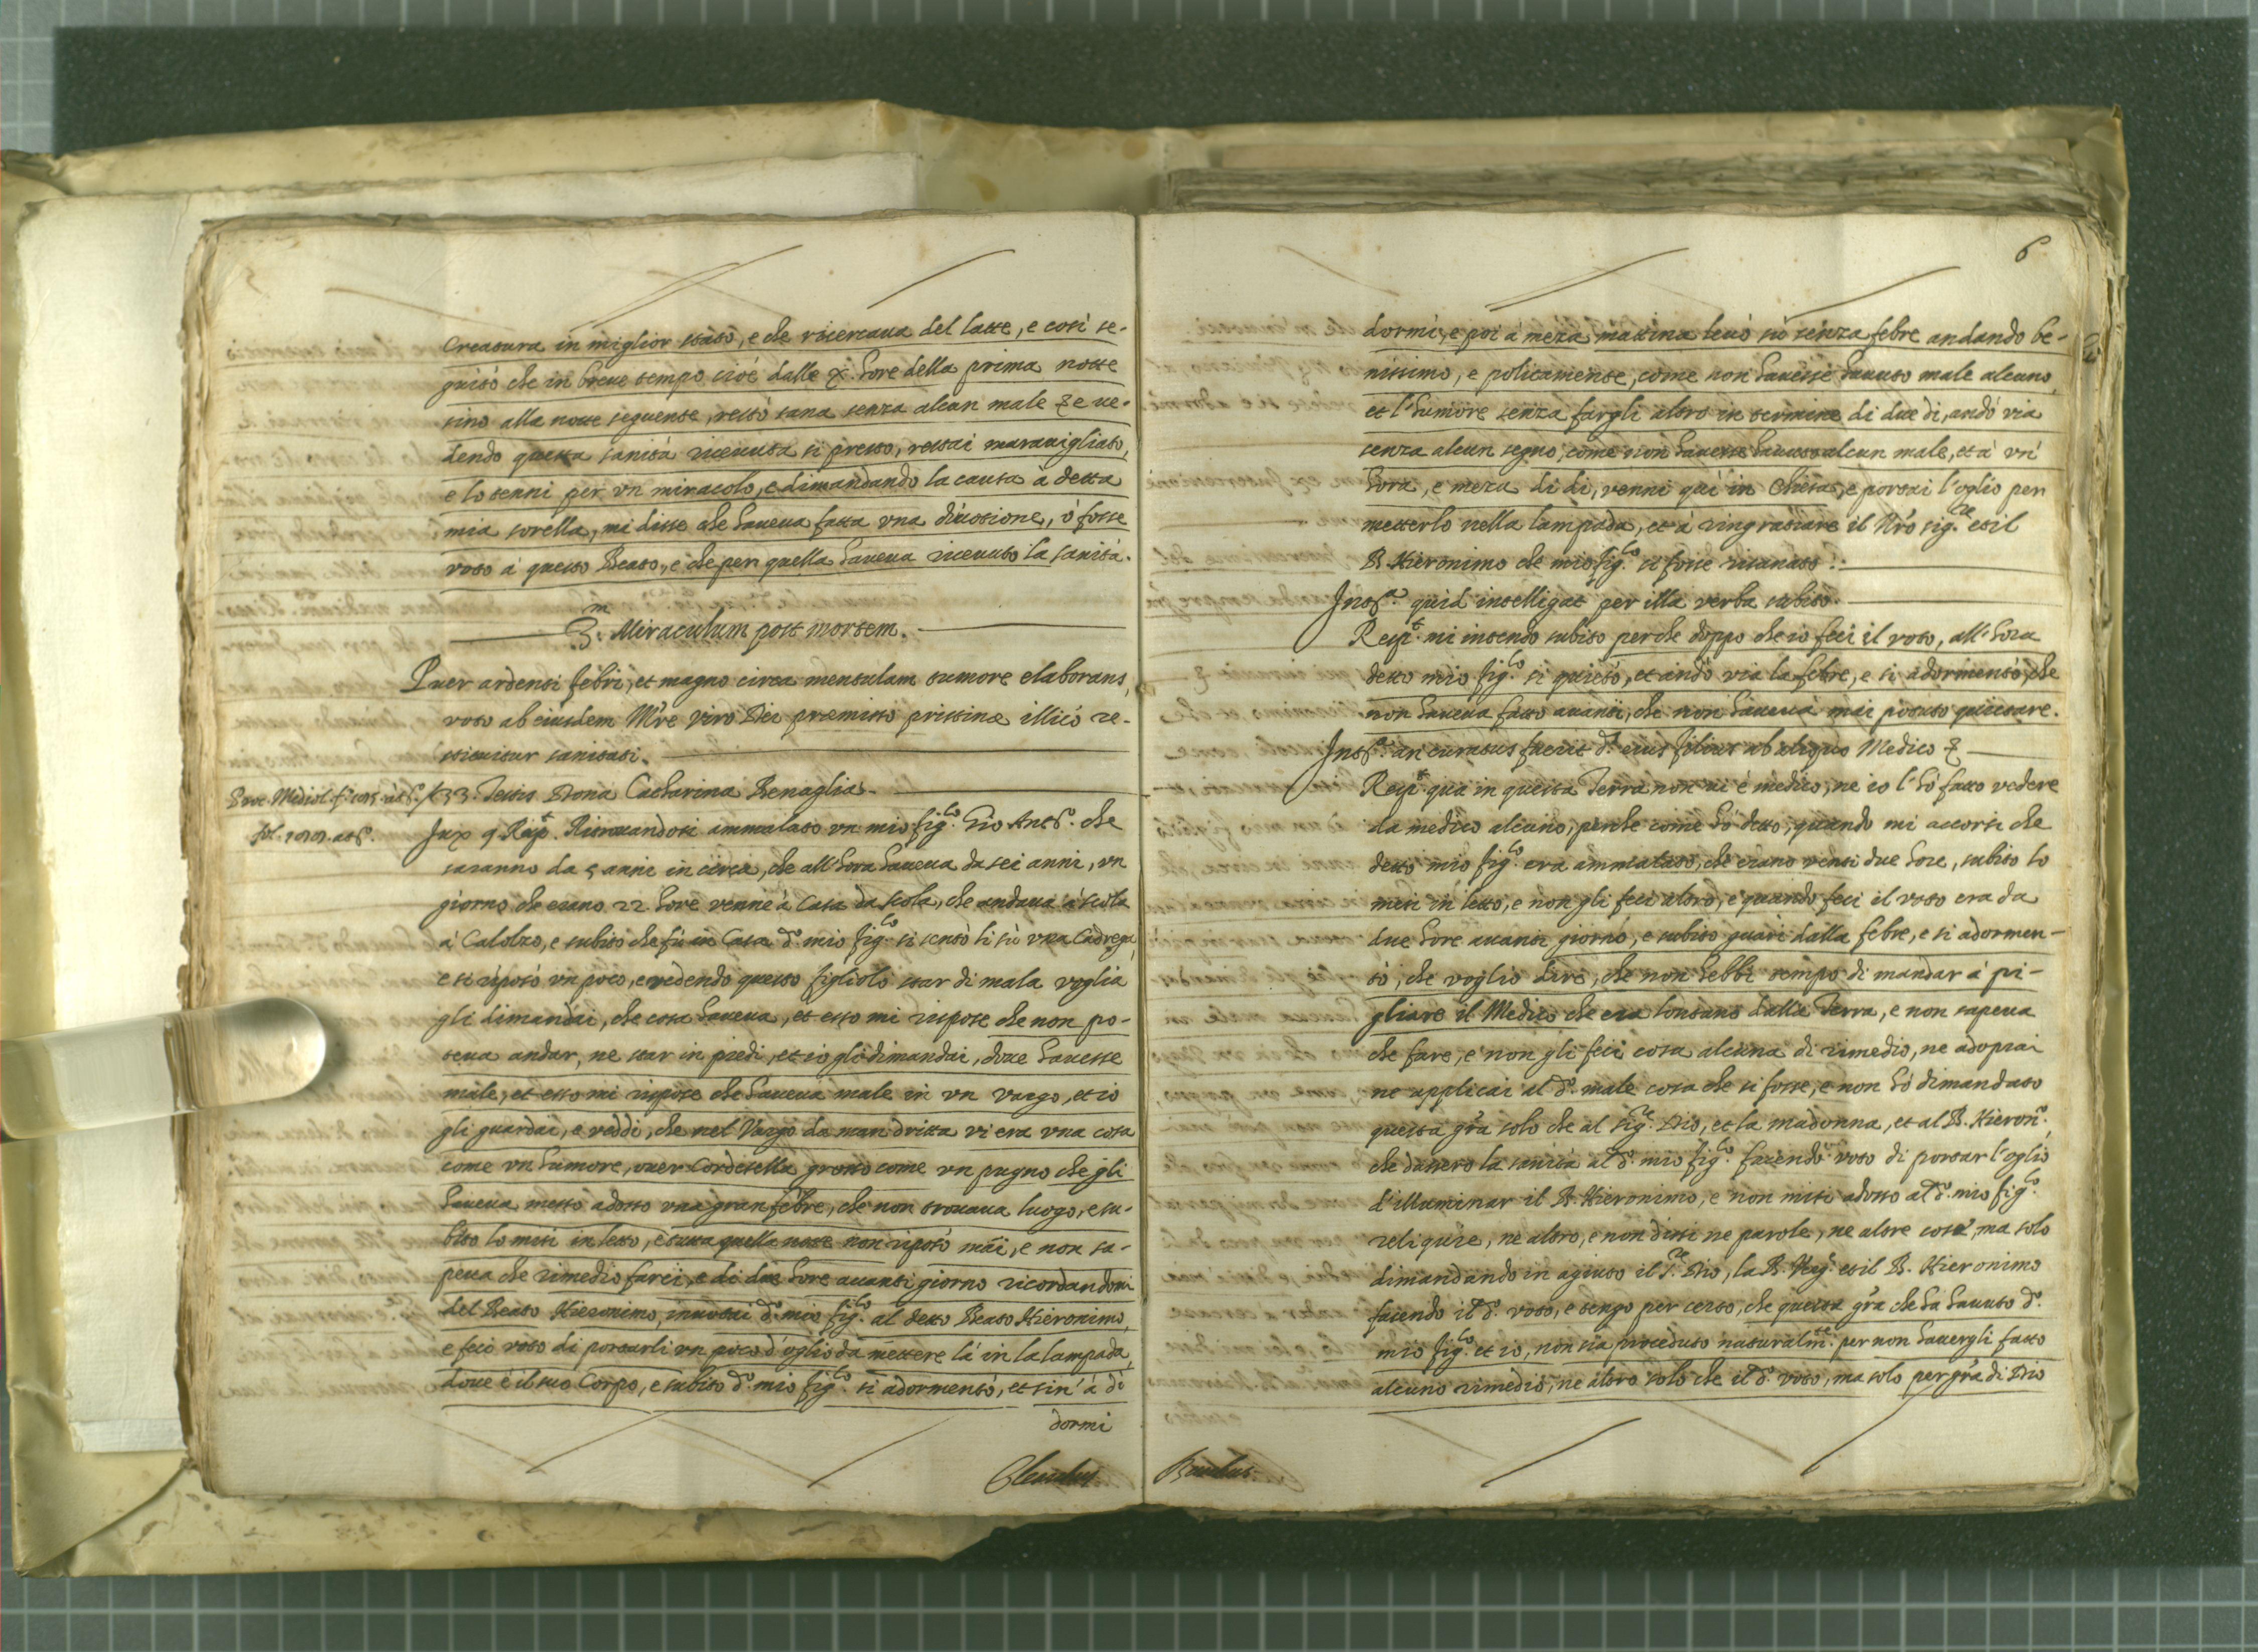 creatura in miglior stato, e che ricercaua del latte, e così se-
guitò che in breue tempo cioè dalle X. hore della prima notte
sino alla notte seguente, restò sana senza alcun male & e ue-
dendo questa sanità riceuuta sì presto, restai marauigliato,
e lo tenni per vn miracolo, e dimandando la causa à detta
mia sorella, mi disse che haueua fatta vna diuotione, ò fosse
voto à questo Beato, e che per quella haueua riceuuto la sanità.
3.m Miraculum post mortem.
Puer ardenti febri, et magno circa mensulam tumore elaborans,
voto ab eiusdem M're viro Dei præmisso pristinæ illicò re-
stituitur sanitati.
33. Testis Dona Catharina Benaglia.
fol. 1019. att.o
Jux 9. Resp.t Ritrouandosi ammalato vn mio fig.lo Gio Ant.o che
saranno da 5 anni in circa, che all'hora haueua da sei anni, vn
giorno che erano 22. hore venne à Casa da scola, che andaua à scola
à Calolzo, e subito che fù in Casa d.o mio fig.lo si sentò lì sù vna Cadrega,
e si ripotò vn poco, e vedendo questo figliolo star di mala voglia
gli dimandai, che cosa haueua, et esso mi rispose che non po-
teua andar, ne star in piedi, et io gli dimandai, doue hauesse
male, et esso mi rispose che haueua male in vn vargo, et io
gli guardai, e veddi, che nel Vargo da man dritta vi era vna cosa
come vn tumore, ouer Cordesella grosso come vn pugno che gli
haueua messo adosso vna gran febre, che non trouaua luogo, e su-
bito lo missi in letto, e tutta quella notte non ripotò mai, e non sa-
peua che rimedio farci, e di due hore auanti giorno ricordandomi
del Beato Hieronimo, inuotai d.o mio fig.lo al detto Beato Hieronimo,
e feci voto di portarli vn poco d'oglio da mettere là in la lampada,
doue è il suo Corpo, e subito d.o mio fig.lo si adormentò, et sin' à dì
dormi
6
dormì, e poi à meza mattina leuò sù senza febre andando be-
nissimo, e politamente, come non hauesse hauuto male alcuno,
et l'humore senza fargli altro in termine di due dì, andò via
senza alcun segno, come non hauesse hauuto alcun male, et à vn'
hora, e meza di dì, venni quì in Chiesa, e portai l'oglio per
metterlo nella lampada, et à ringratiare il N'ro sig.re et il
B. Hieronimo che mio fig.lo si fosse risanato.
Int.a quid intelligat per illa verba subito.
Resp.t mi intendo subito perche doppo che io feci il voto, all'hora
detto mio fig.lo si quietò, et andò via la febre, e si adormentò, che
non haueua fatto auanti, che non haueua mai potuto quietare.
Int.a an curatus fuerit d.s eius filius ab aliquo Medico &
Resp.t qua in questa Terra non ui è medico, ne io l'hò fatto vedere
da medico alcuno, perche come hò detto, quando mi accorsi che
detto mio fig.lo era ammalato, che erano venti due hore, subito lo
missi in letto, e non gli feci altro, e quando feci il voto era da
due hore auanti giorno, e subito guarì dalla febre, e si adormen-
tò, che voglio dire, che non hebbi tempo di mandar à pi-
gliare il Medico che era lontano dalla Terra, e non sapeua
che fare, e non gli feci cosa alcuna di rimedio, ne adoprai
ne applicai al d.o male cosa che si fosse, e non hò dimandato
questa gr'a solo che al sig.re Dio, et la madonna, et al B. Hieron.o,
che dassero la sanità al d.o mio fig.lo facendo voto di portar l'oglio
d'illuminar il B. Hieronimo, e non missi adosso al d.o mio fig.lo
reliquie, ne altro, e non dissi ne parole, ne altre cose, ma solo
dimandando in agiuto il S.re Dio, la B. Verg.e et il B. Hieronimo
facendo il d.o voto, e tengo per certo, che questa gr'a che hà hauuto d.o
mio fig.lo et io, non sia proceduto naturalm.te per non hauergli fatto
alcuno rimedio, ne altro solo che il d.o voto, ma solo per gr'a di Dio